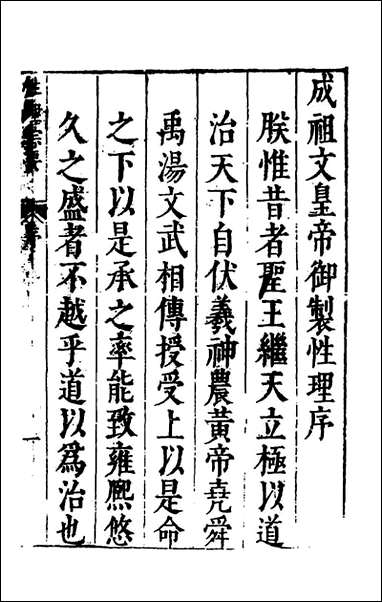 成祖文皇帝御製性理序
朕惟昔者聖王繼天立極以道
治天下自伏羲神農黃帝堯舜
禹湯文武相傳授受上以是命
之下以是承之率能致雍熙悠
久之盛者不越乎道以爲治也
一